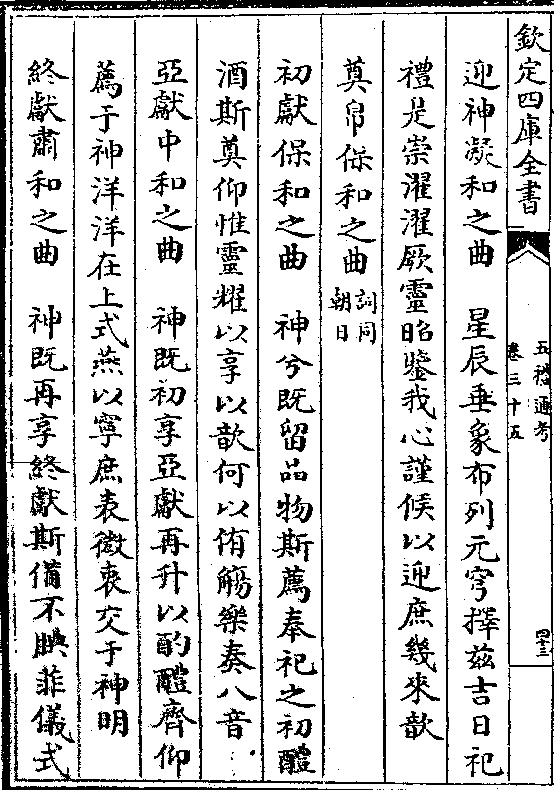 欽定四庫全書
五禮通考
卷三十五
四十三
迎神凝和之曲　星辰垂象布列元穹擇茲吉日祀
禮是崇濯濯厥靈昭鑒我心謹候以迎庶幾來歆
奠帛保和之曲詞同朝日
初獻保和之曲　神兮既留品物斯薦奉祀之初醴
酒斯奠仰惟靈耀以享以歆何以侑觴樂奏八音
亞獻中和之曲　神既初享亞獻再升以酌醴齊仰
薦于神洋洋在上式燕以寧庶表微衷交于神明
終獻肅和之曲　神既再享終獻斯備不腆菲儀式